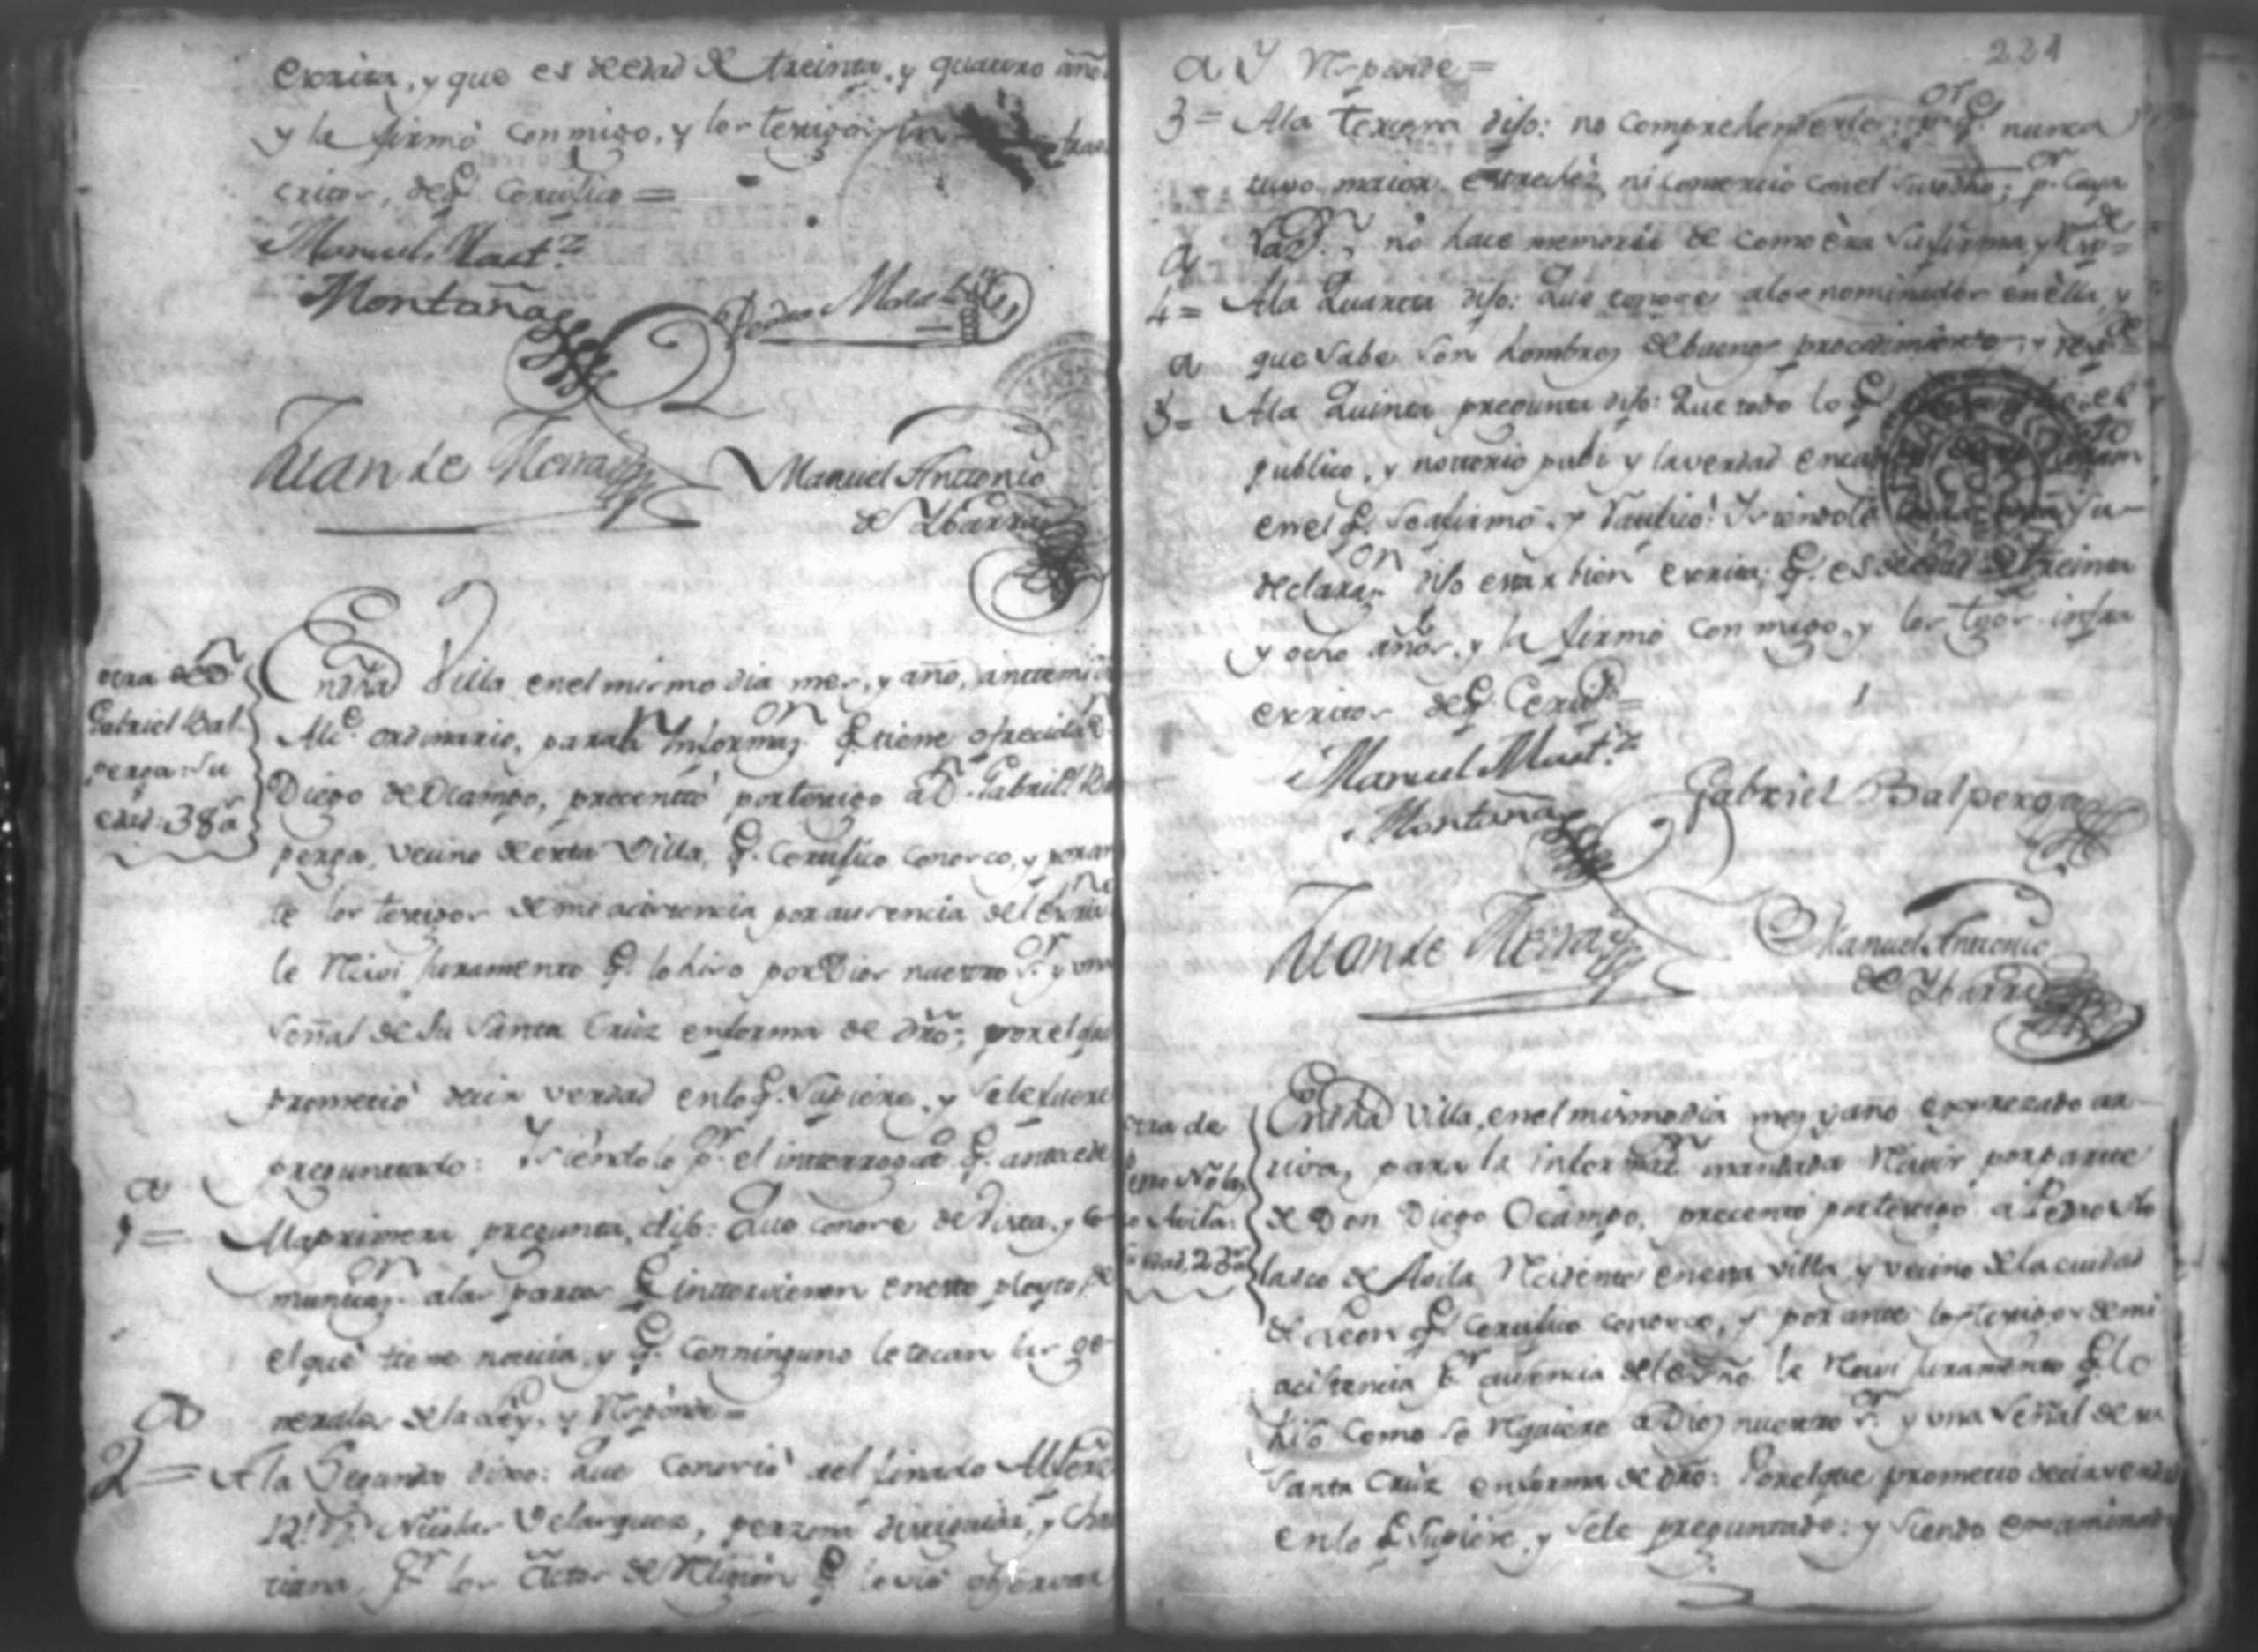 escrita, y que es de edad de treinta, y quatro años
y la firmó conmigo, y los testigos in
critos, de q.e Certifico =
Manuel Mart.z
Montaña
Pedro
Juan de
Manuel Anttonio
de Ybarra
otra de D.n
Gabriel Bal
perga su
edad 38 a.s
En dha Villa en el mismo dia mes, y año, antte mi
Alc.e ordinario, para la Informaz.on q.e tiene ofrecida D.n
Diego de Ocampo, precenttó por testigo a D.n Gabriel Bal
perga, vecino de esta Villa, q.e Certifico conosco, y por an
te los testigos de mi acistencia por ausencia del Escriv.no
le Reciví Juramento q.e lo hiso por Dios nuestro s.or y una
señal de Su Santa Crúz en forma de dro; por el que
prometió decir verdad en lo q.e Supiere, y se le fuere
preguntado: Y siendolo p.r el intterrogat.o q.e antecede
a
1 = A la primera pregunta, dijo: Que conose de Vista, y co
municaz.on a las partes q.e inttervienen en estte pleyto, de
el que tiene noticia, y q.e con ninguno le tocan las ge
nerales de la Ley, y Responde =
a
2 = A la Segunda dixo: Que conoció al finado Alferez
R.l D.n Nicolas Velasquez, perzona distinguida, y Chris
tiana, p.r los Actos de Religion q.e le vió observar
221
a y Responde =
3 = A la tercera dijo: no comprehenderla: p.or q.e nunca
tuvo maior estrechéz, ni comercio con el susodho; p.or cuya
raz.n no hace memoria de como era su firma, y R.de =
a
4 = A la Quarta dijo: Que conose a los nominados en ella, y
que sabe son hombres de buenos procedimientos, y resp.de =
a
5 = A la Quinta pregunta dijo: Que todo lo q.e
publico, y nottorio publi y la verdad en
en el q.e se afirmó, y Ratificó: Y siendole su
declaraz.on dijo estar bien escrita: q.e es de edad de treinta
y ocho años, y la firmó conmigo, y los tgos infra
escritos de q.e Certif.co =
Manuel Mart.z
Montaña
Gabriel Balperga
Juan de
Manuel Anttonio
de Ybarra
otra de
Pedro Nolas
co Avila:
edad, 23 a.s
En dha Villa, en el mismo dia mes y año expresado ar
riva, para la informaz.on mandada Recivir por parte
de Don Diego Ocampo, precentó por testigo a Pedro No
lasco de Avila Recidente en esta Villa, y vecino de la ciudad
de Leon q.e Certifico conosco, y por ante los testigos de mi
acistencia p.r ausencia del Esno le Reciví Juramento q.e lo
hiso como se Requiere a Dios nuestro s.or y una Señal de su
Santa Crúz en forma de dro: Por el que prometió decir verdad
en lo q.e Supiere, y se le preguntado: y siendo examinado